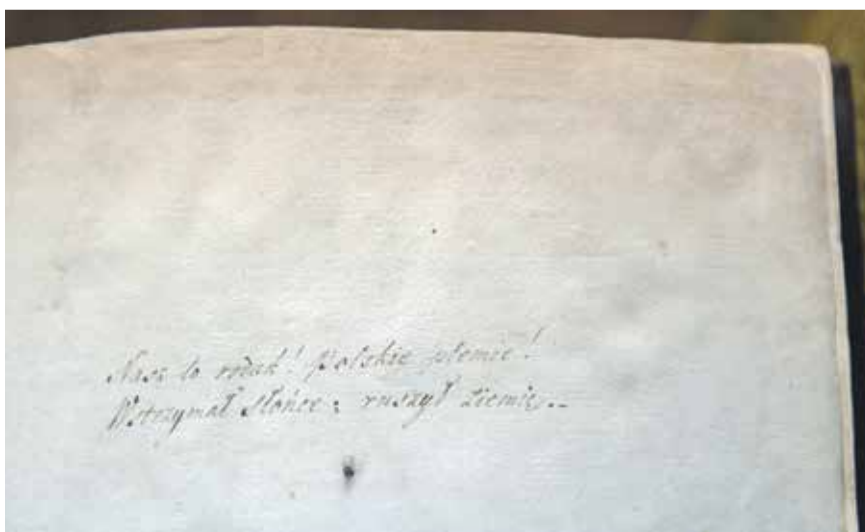 Nasz to rodak! Polskie plemie!
Wstrzymał słońce: ruszył ziemię..